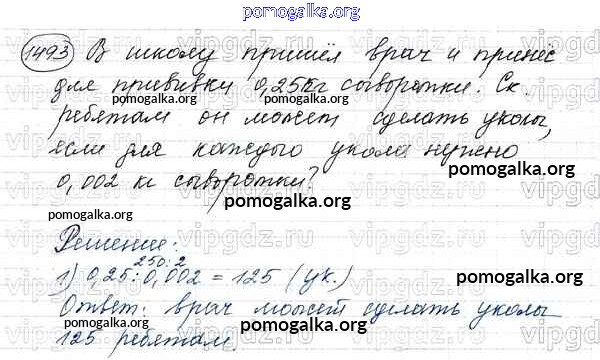 pomogalka.org
1493 В школу пришёл врач и принёс
для прививки 0,25кг сыворотки. Ск.
ребятам он может сделать уколы,
если для каждого укола нужно
0,002 кг сыворотки?
Решение:
250:2
1) 0,25:0,002 = 125 (ук.)
Ответ: врач может сделать уколы
125 ребятам.
pomogalka.org
pomogalka.org
pomogalka.org
pomogalka.org
pomogalka.org
pomogalka.org
pomogalka.org
pomogalka.org
pomogalka.org
vipgdz.ru